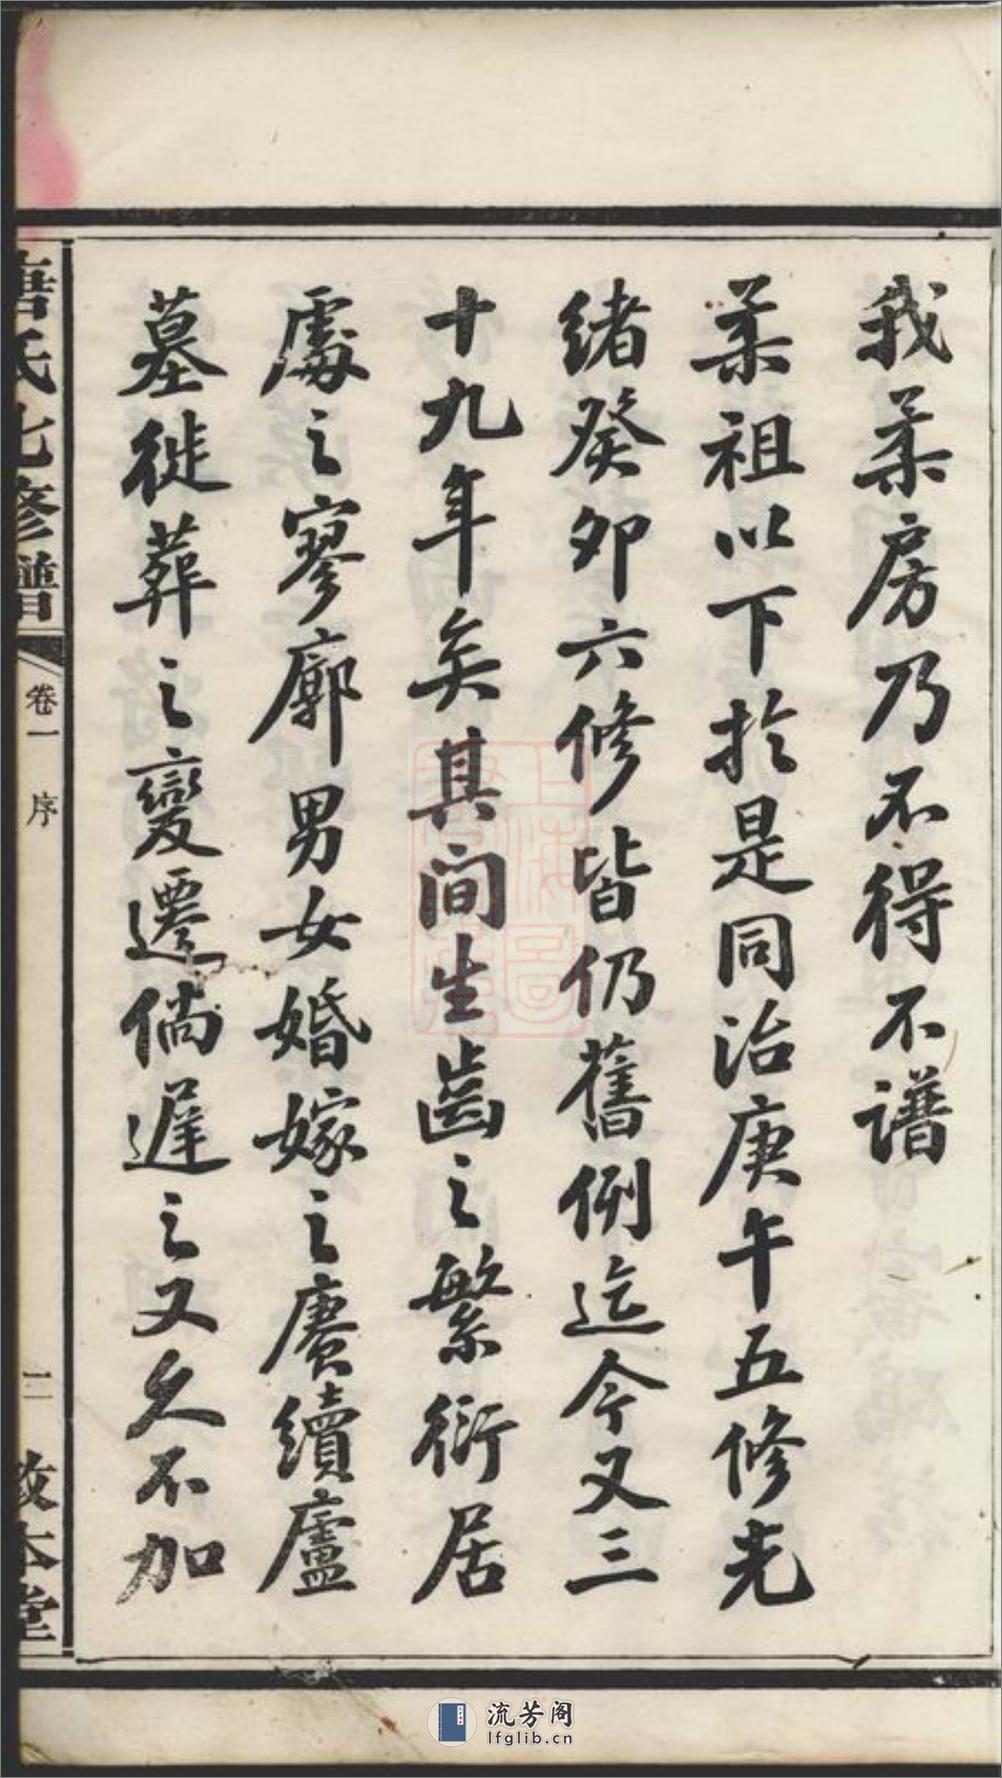 我柔房乃不得不譜
柔祖以下於是同治庚午五修光
緒癸卯六修皆仍舊例迄今又三
十九年矣其間生齒之繁衍居
處之寥廓男女婚嫁之賡續廬
墓徙葬之變遷倘遲之又久不加
唐氏七修譜
卷一 序
二
敦本堂
流芳阁
lfglib.cn